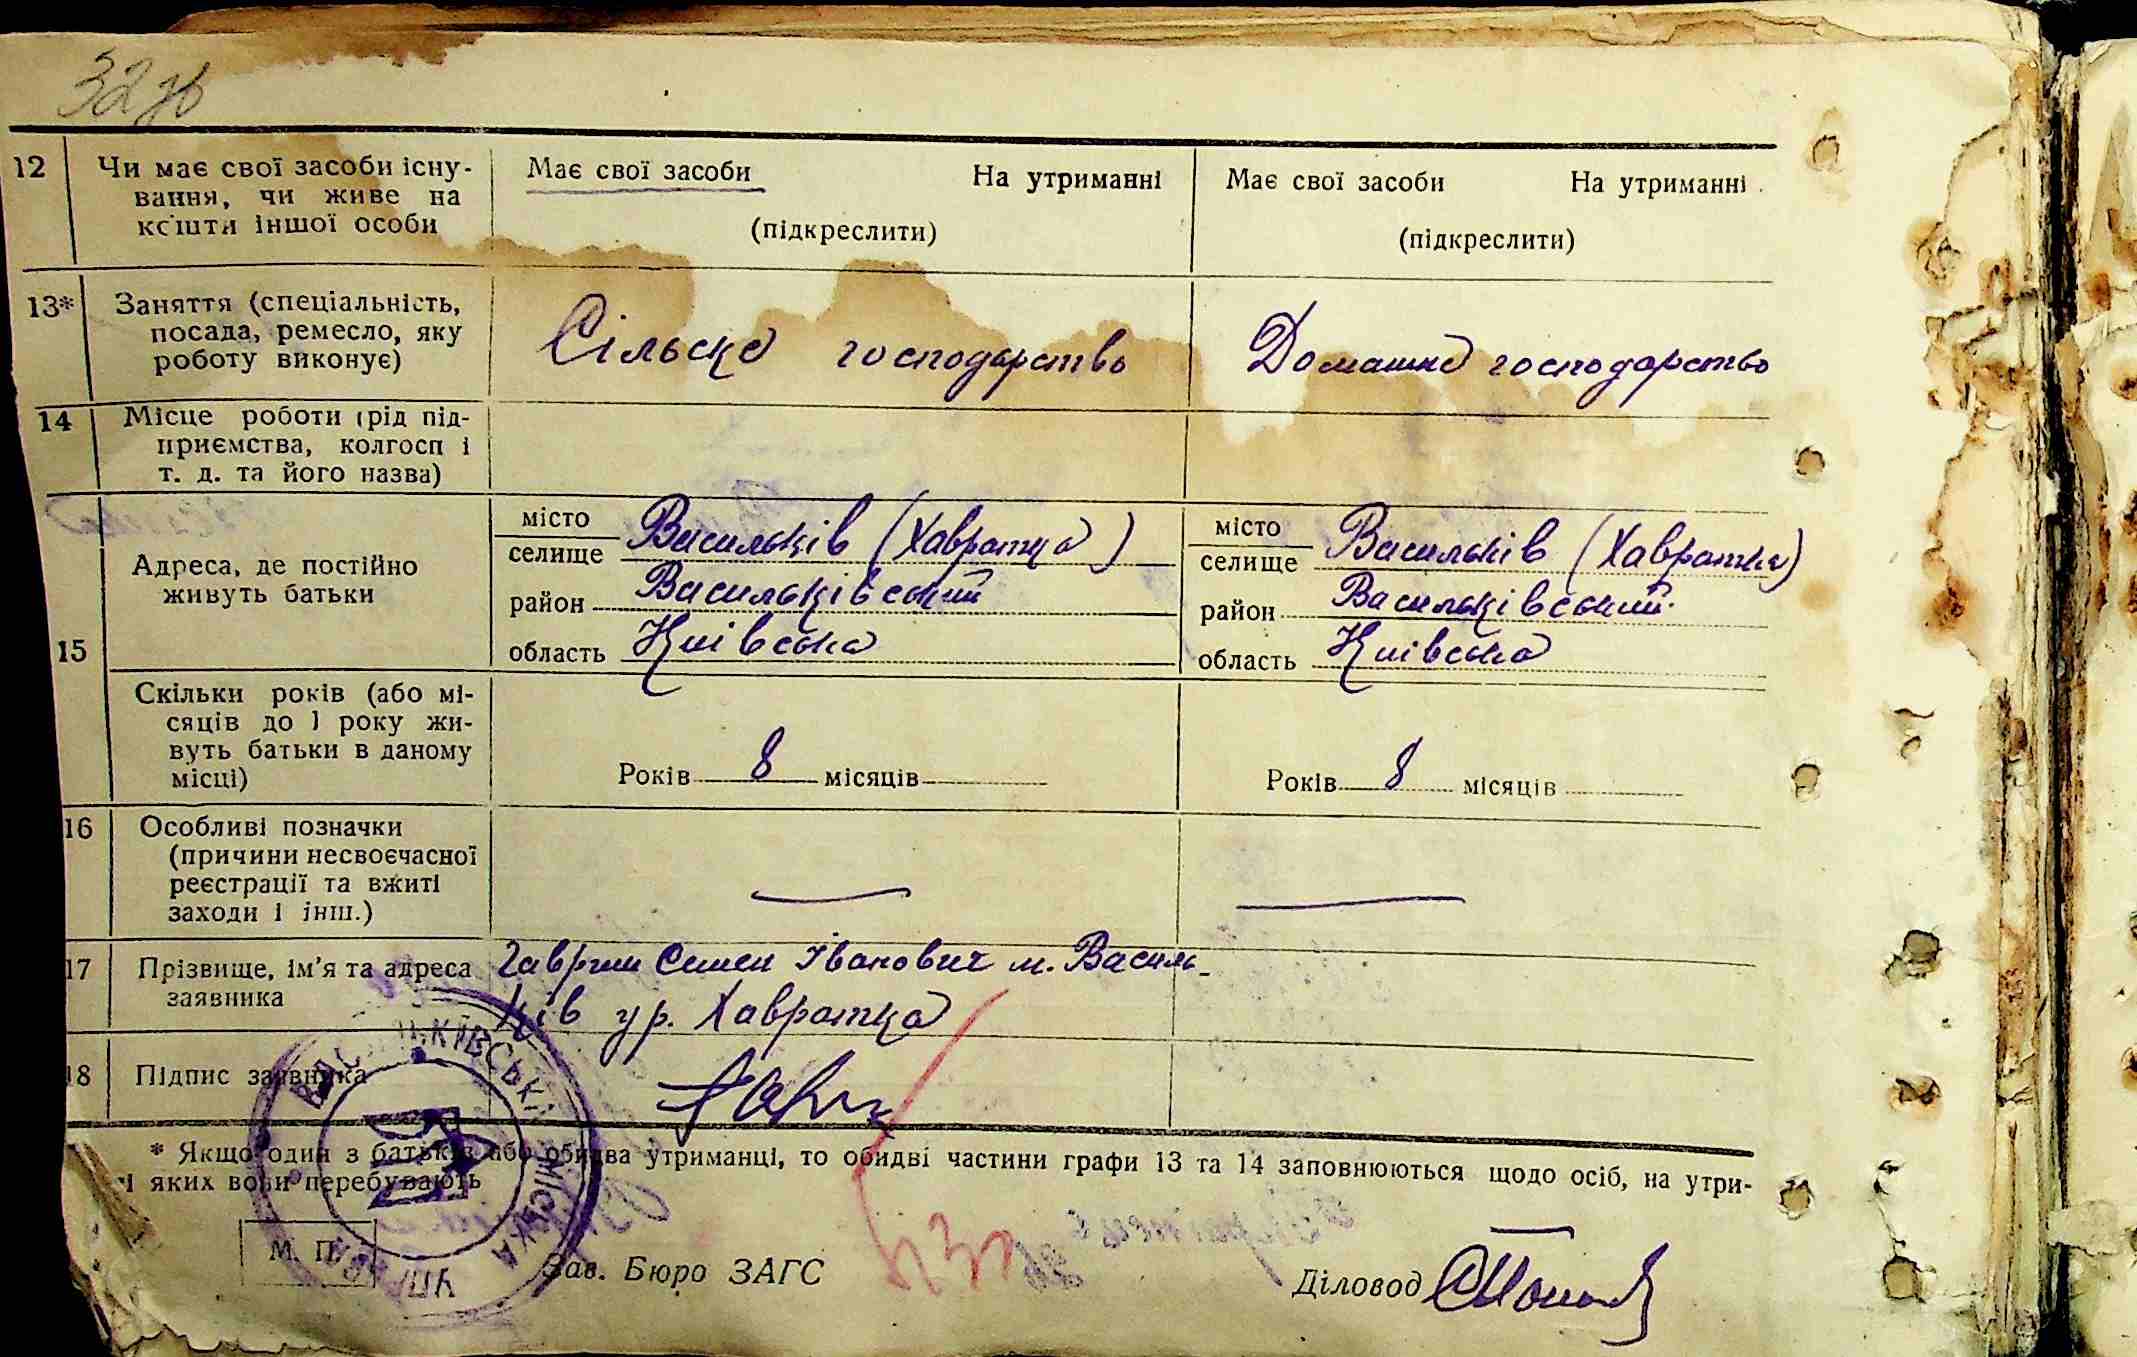 32 зв
12 Чи має свої засоби існу- Має свої засоби На утриманні Має свої засоби На утриманні
вання, чи живе на
кошти іншої особи (підкреслити) (підкреслити)
13* Заняття (спеціальність,
посада, ремесло, яку Сільске господарство Домашнє господарство
роботу виконує)
14 Місце роботи (рід під-
приємства, колгосп і
т. д. та його назва)
15 Адреса, де постійно
живуть батьки
місто
селище Васильків (Хавратка)
район Васильківський
область Киівська
місто
селище Васильків (Хавратка)
район Васильківський
область Киівська
Скільки років (або мі-
сяців до 1 року жи-
вуть батьки в даному
місці)
Років 8 місяців
Років 8 місяців
16 Особливі позначки
(причини несвоєчасної
реєстрації та вжиті
заходи і інш.)
17 Прізвище, ім'я та адреса
заявника
Гавриш Семен Іванович м. Василь-
ків ур. Хавратка
18 Підпис заявника
* Якщо один з батьків або обидва утриманці, то обидві частини графи 13 та 14 заповнюються щодо осіб, на утри-
і яких вони перебувають
ВАСИЛЬКІВСЬКА МІСЬКА УПРАВА
М. П.
Зав. Бюро ЗАГС
Діловод